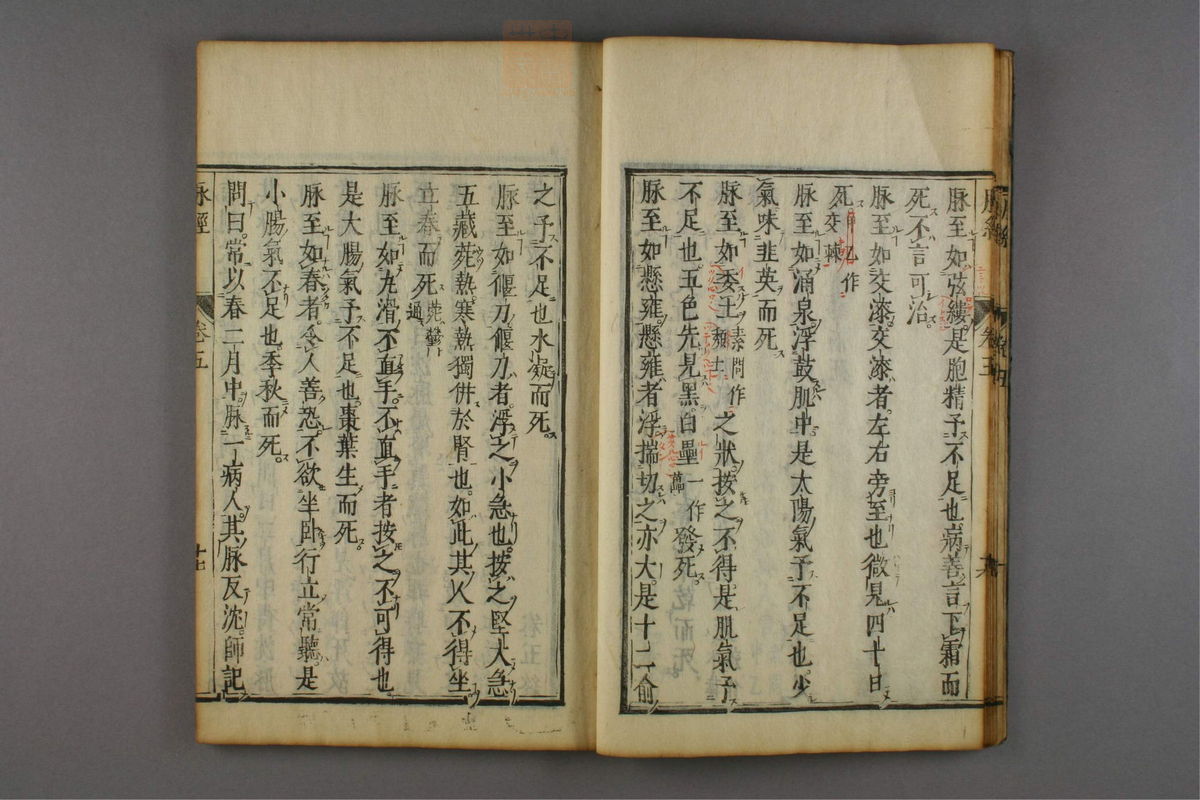 脉至如弦縷是胞精予不足也病善言下霜而
死不言可治
脉至如交漆交漆者左右旁至也微見四十日
死一作交棘
脉至如涌泉浮鼓肌中是太陽氣予不足也少
氣味韭英而死
脉至如委土素問作頹土之狀按之不得是肌氣予
不足也五色先見黑白壘一作藟發死
脉至如懸雍懸雍者浮揣切之亦大是十二俞
之予不足也水凝而死
脉至如偃刀偃刀者浮之小急也按之堅大急
五藏菀熱寒熱獨併於腎也如此其人不得坐
立春而死
脉至如丸滑不直手不直手者按之不可得也
是大腸氣予不足也棗葉生而死
脉至如舂者令人善恐不欲坐臥行立常聽是
小腸氣不足也季秋而死
問曰常以春二月中脉一病人其脉反沈師記
脉經
卷五